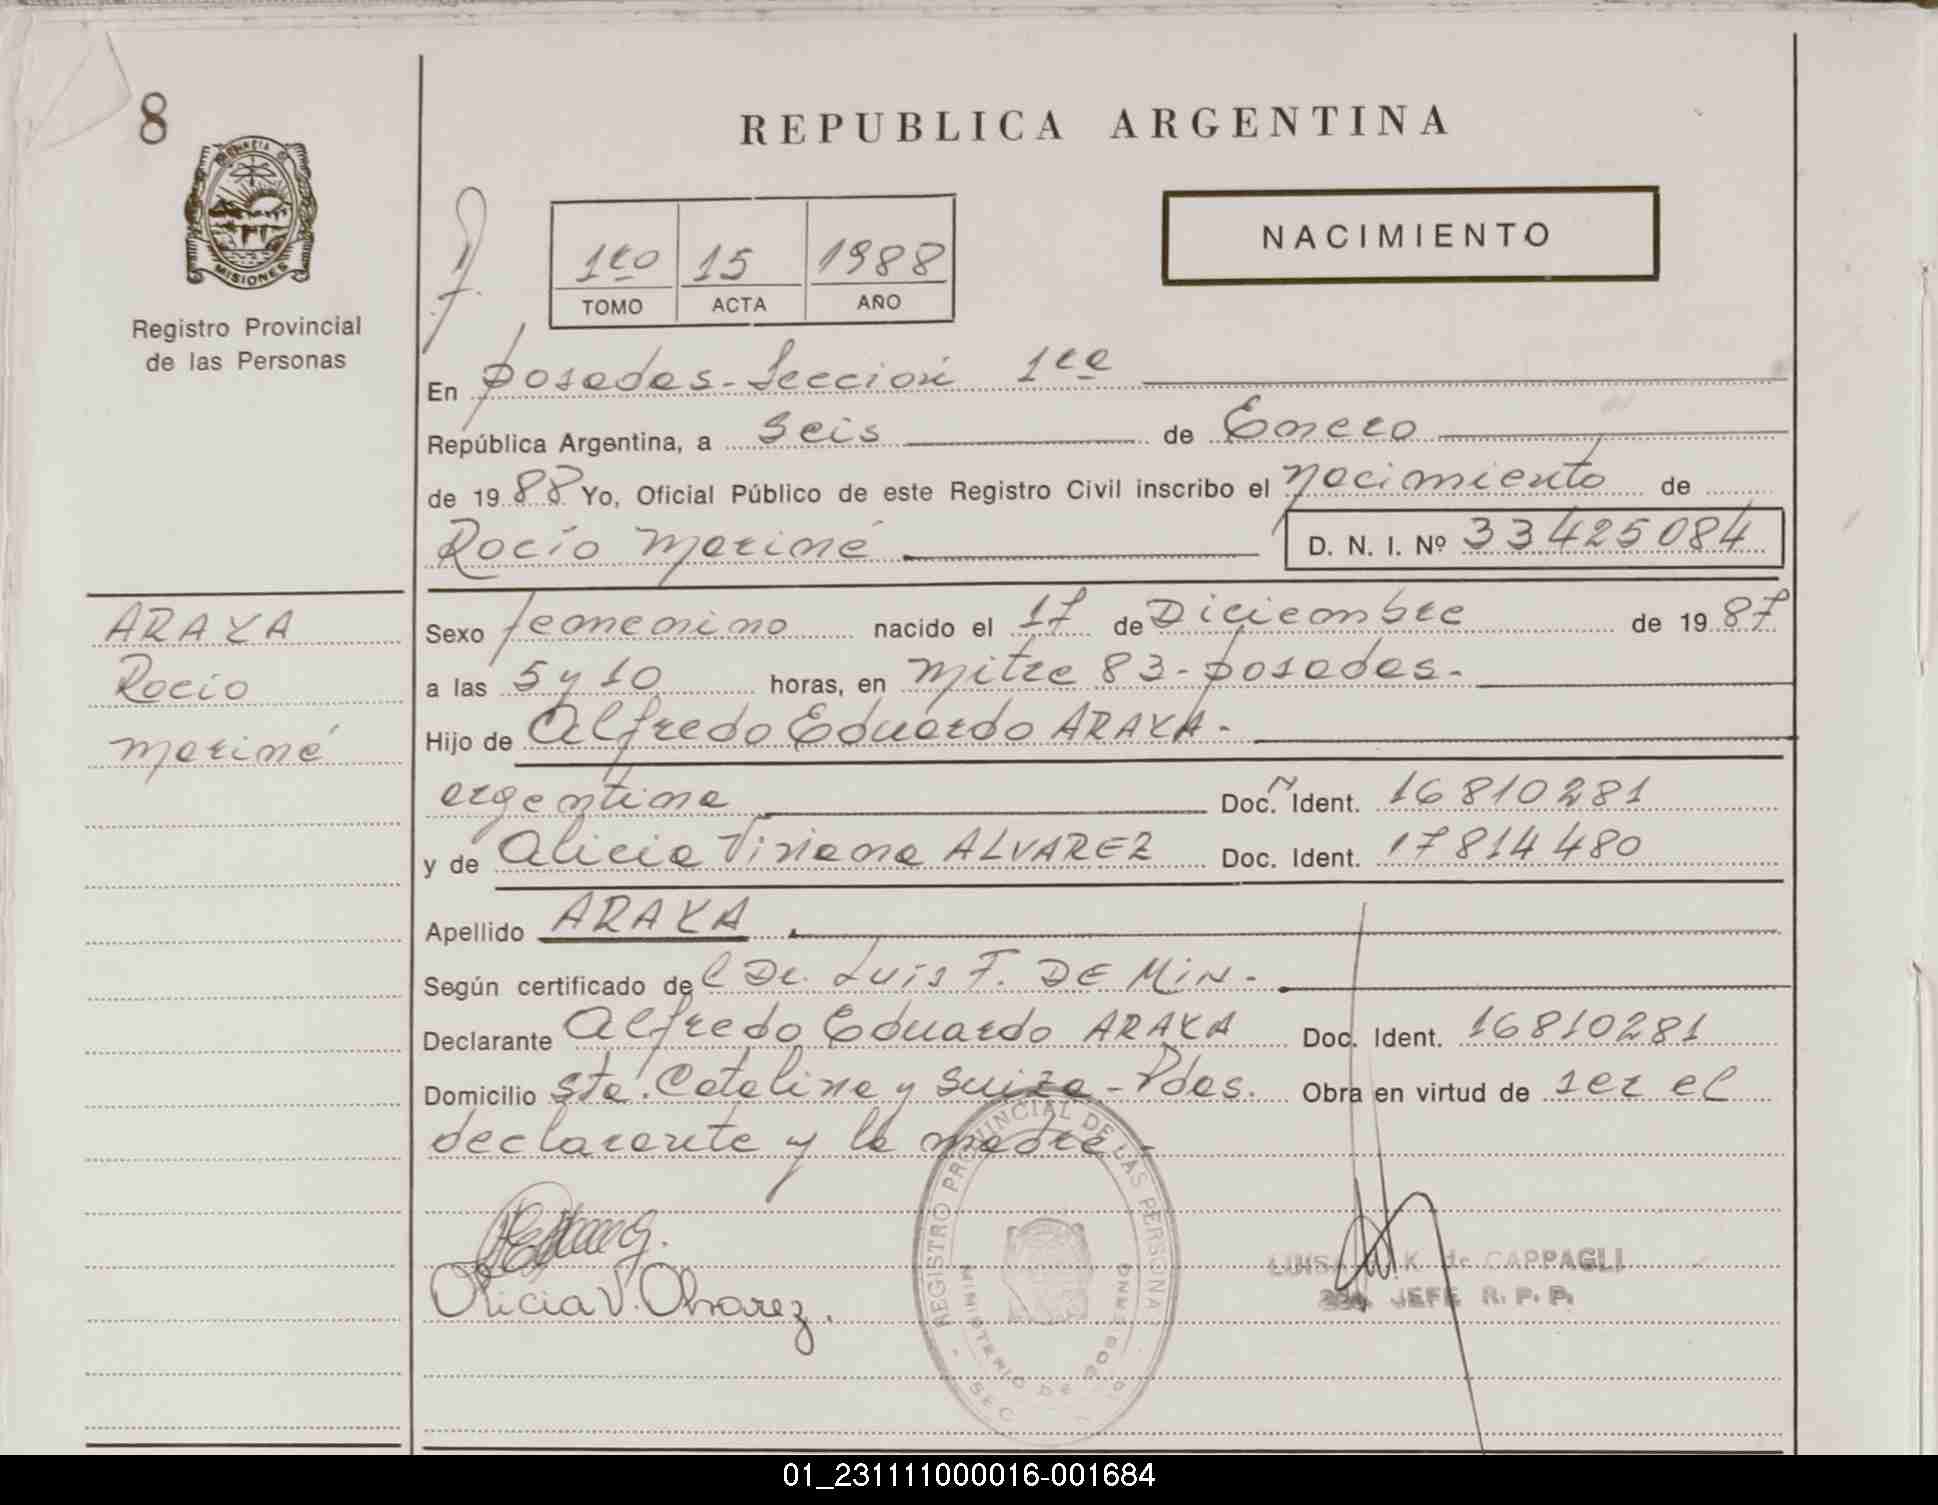 8
REPUBLICA ARGENTINA
PROVINCIA DE
MISIONES
Registro Provincial
de las Personas
1ro 15 1988
TOMO ACTA AÑO
NACIMIENTO
En Posadas - Sección 1ra
República Argentina, a Seis de Enero
de 1988 Yo, Oficial Público de este Registro Civil inscribo el nacimiento de
Rocío Mariné D. N. I. Nº 33425084
ARAYA
Rocío
Mariné
Sexo femenino nacido el 17 de Diciembre de 1987
a las 5 y 10 horas, en Mitre 83 - Posadas.-
Hijo de Alfredo Eduardo ARAYA.-
argentina Doc. Ident. 16810281
y de Alicia Viviana ALVAREZ Doc. Ident. 17814480
Apellido ARAYA
Según certificado de l Dr. Luis F. DE MIN.-
Declarante Alfredo Eduardo ARAYA Doc. Ident. 16810281
Domicilio Sta. Catalina y Suiza - Pdas. Obra en virtud de ser el
declarante y la madre.-
Alicia V. Alvarez.
REGISTRO PROVINCIAL DE LAS PERSONAS
MINISTERIO DE GOBIERNO
LUISA K. de CAPPAGLI
JEFE R. P. P.
01_231111000016-001684